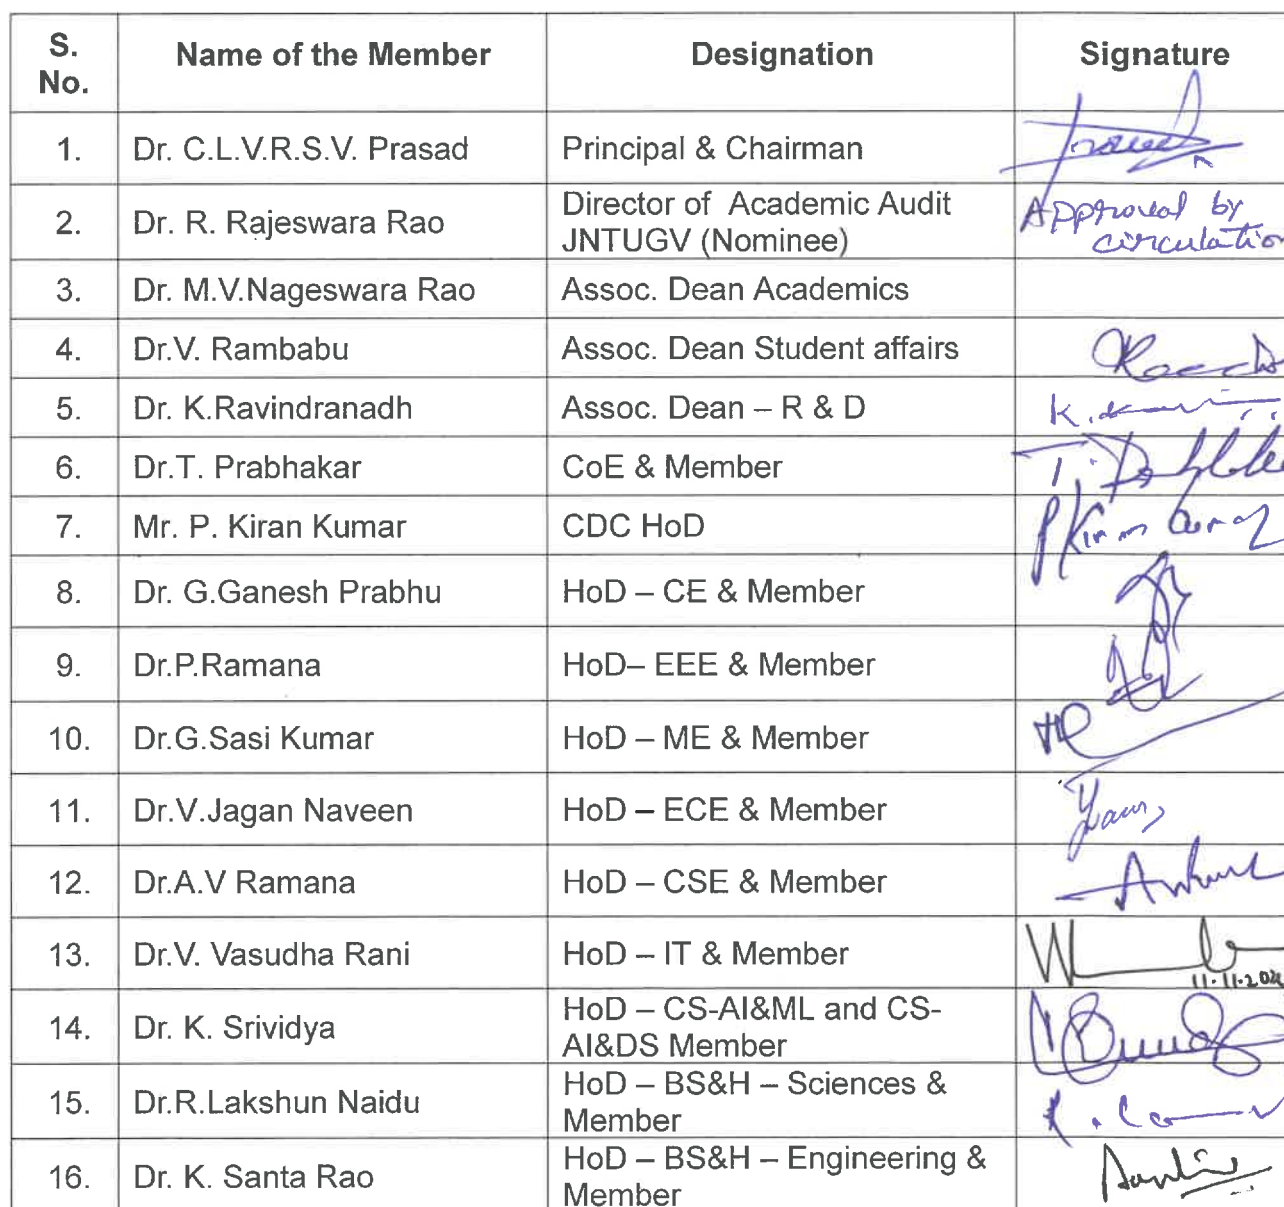 S. No. Name of the Member Designation Signature
1. Dr. C.L.V.R.S.V. Prasad Principal & Chairman
2. Dr. R. Rajeswara Rao Director of Academic Audit JNTUGV (Nominee) Approval by circulation
3. Dr. M.V.Nageswara Rao Assoc. Dean Academics
4. Dr.V. Rambabu Assoc. Dean Student affairs
5. Dr. K.Ravindranadh Assoc. Dean – R & D
6. Dr.T. Prabhakar CoE & Member
7. Mr. P. Kiran Kumar CDC HoD
8. Dr. G.Ganesh Prabhu HoD – CE & Member
9. Dr.P.Ramana HoD– EEE & Member
10. Dr.G.Sasi Kumar HoD – ME & Member
11. Dr.V.Jagan Naveen HoD – ECE & Member
12. Dr.A.V Ramana HoD – CSE & Member
13. Dr.V. Vasudha Rani HoD – IT & Member
14. Dr. K. Srividya HoD – CS-AI&ML and CS-AI&DS Member
15. Dr.R.Lakshun Naidu HoD – BS&H – Sciences & Member
16. Dr. K. Santa Rao HoD – BS&H – Engineering & Member